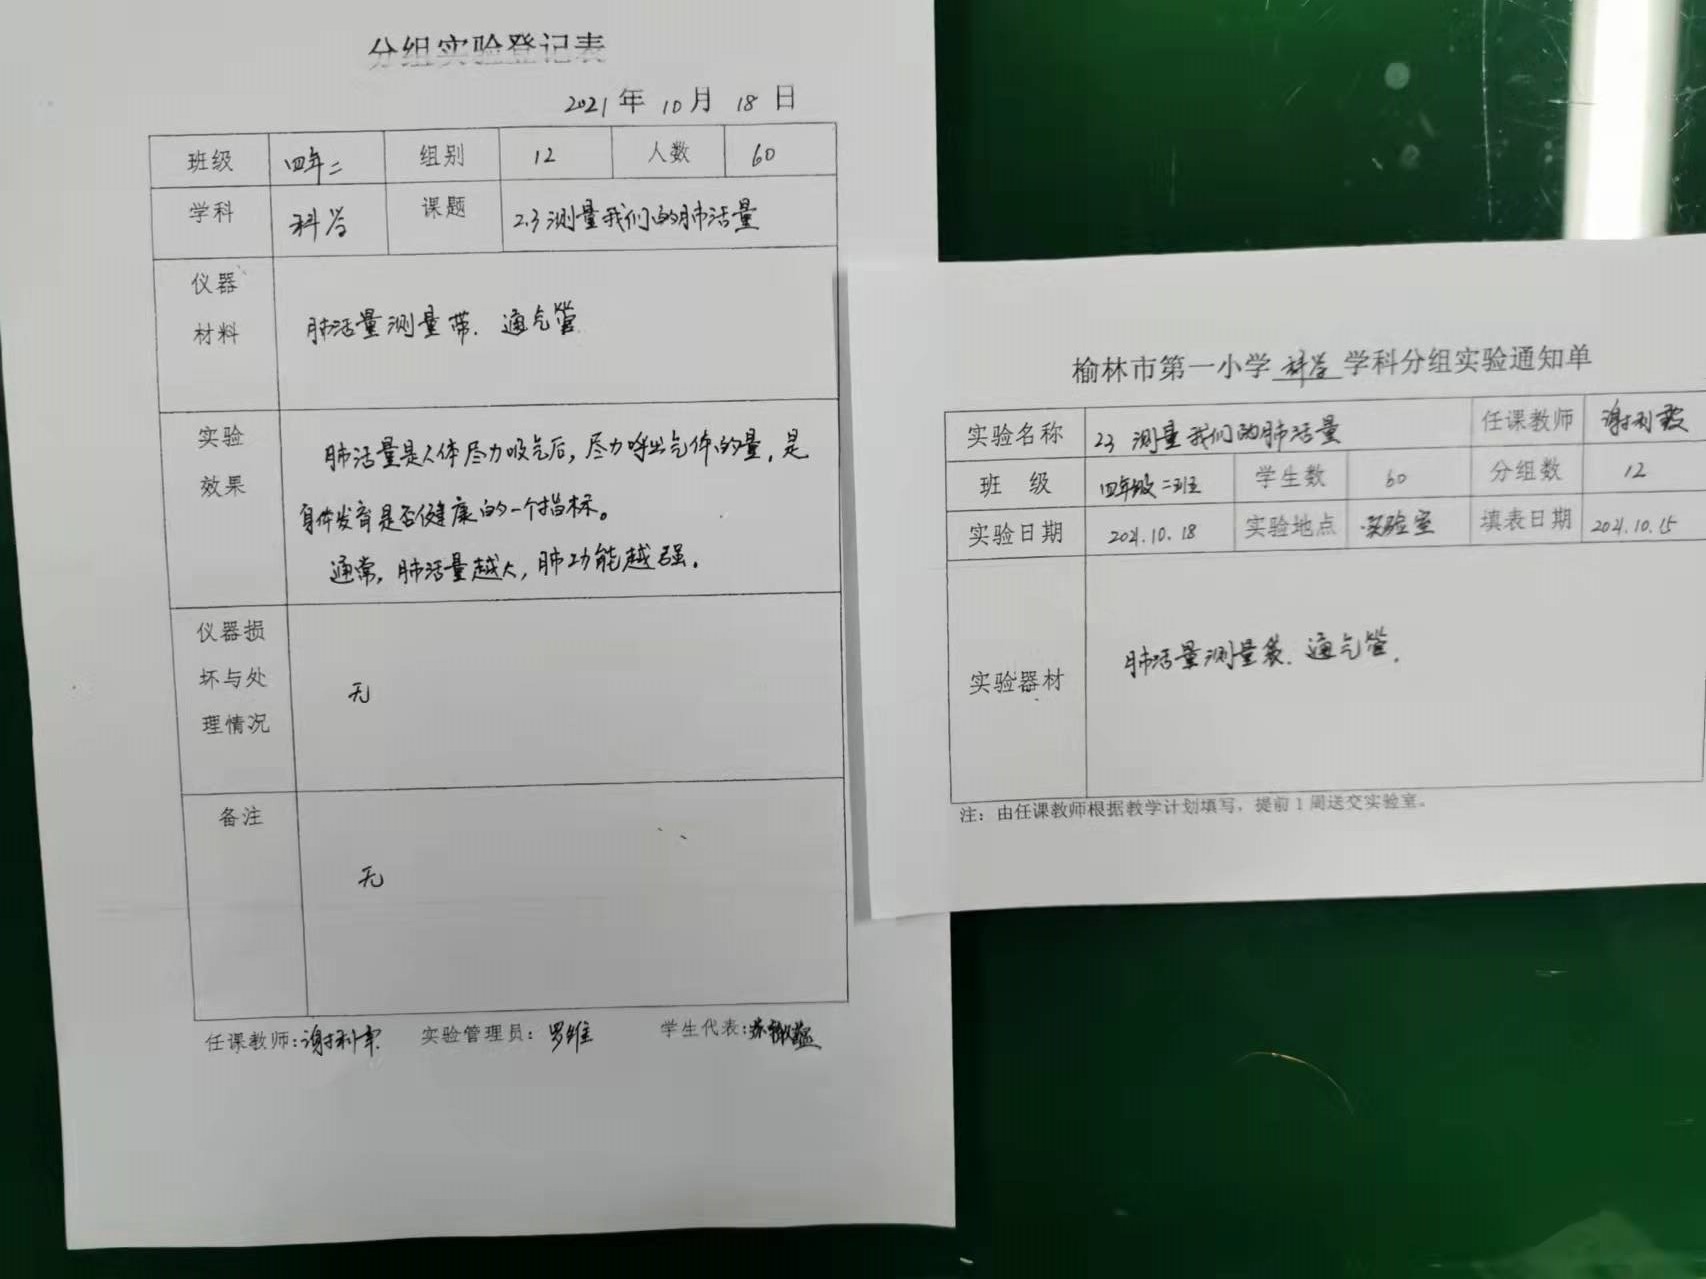 分组实验登记表
2021 年 10 月 18 日
班级 四年二 组别 12 人数 60
学科 科学 课题 2.3 测量我们的肺活量
仪器
材料
肺活量测量带. 通气管
实验
效果
肺活量是人体尽力吸气后,尽力呼出气体的量,是
身体发育是否健康的一个指标。
通常,肺活量越大,肺功能越强。
仪器损
坏与处
理情况
无
备注
无
任课教师: 实验管理员: 罗维 学生代表:
榆林市第一小学 科学 学科分组实验通知单
实验名称 2.3 测量我们的肺活量 任课教师
班 级 四年级二班 学生数 60 分组数 12
实验日期 2021.10.18 实验地点 实验室 填表日期 2021.10.15
实验器材 肺活量测量袋. 通气管.
注：由任课教师根据教学计划填写，提前 1 周送交实验室。